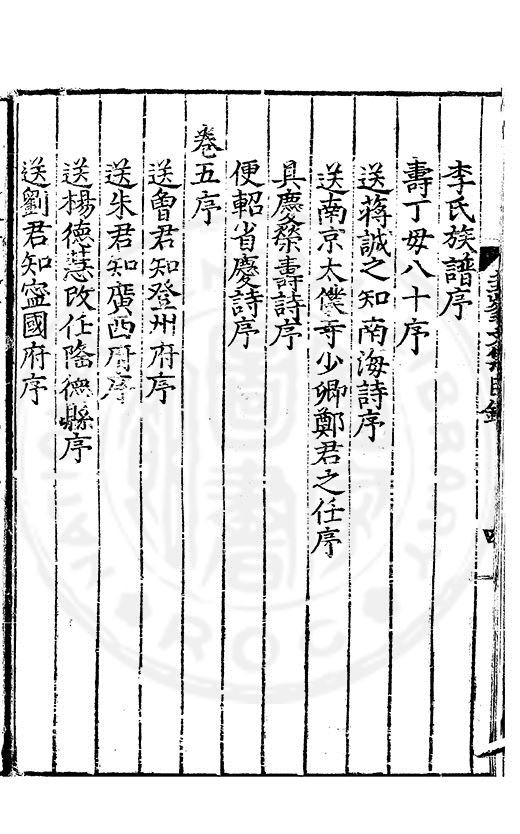 李氏族譜序
壽丁母八十序
送蔣誠之知南海詩序
送南京太僕寺少卿鄭君之任序
具慶榮壽詩序
便軺省慶詩序
卷五序
送魯君知登州府序
送朱君知廣西府序
送楊德慧改任隆德縣序
送劉君知寧國府序